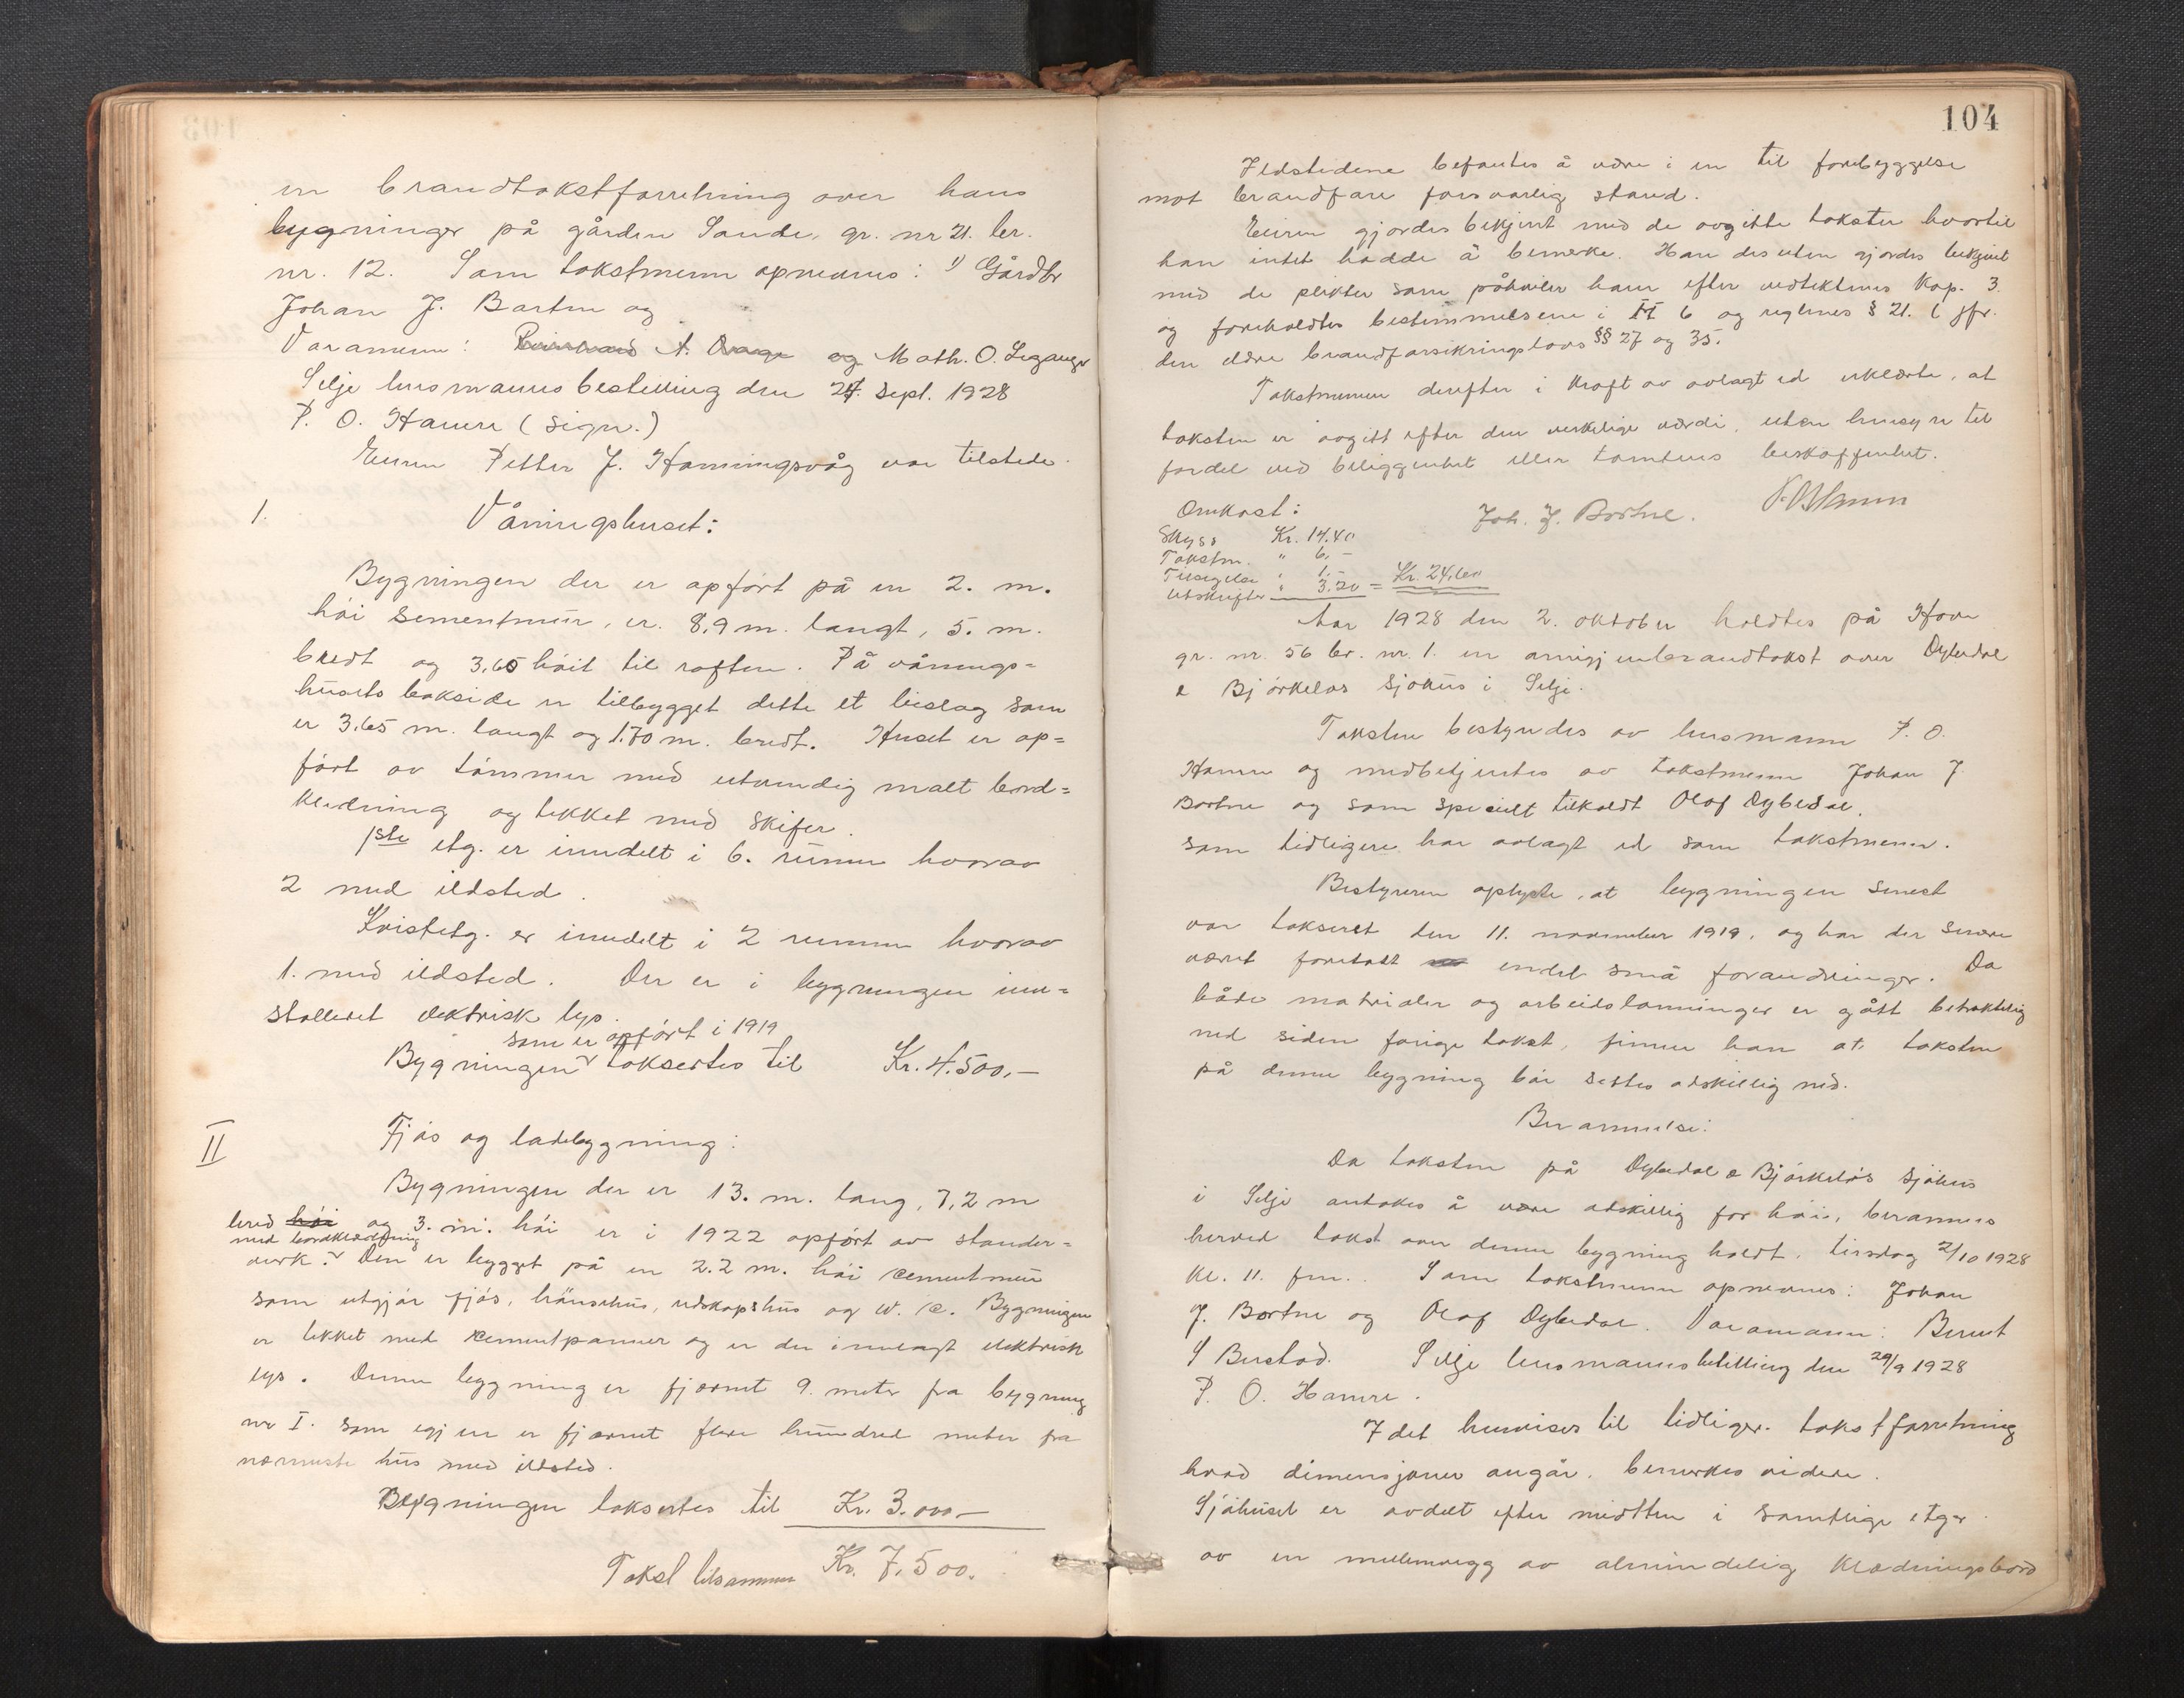 en brandtakstforretning over hans
bygninger på gården Sande, gr. nr 21. br.
nr. 12. Som takstmenn opnevnes: 1) Gårdbr
Johan J. Bartne og
Varamenn: A. og Math. O. Leganger
Selje lensmannsbestilling den 24. Sept. 1928
P. O. Hamre (sign.)
Eieren Petter J. Hamningsvåg var tilstede.
1. Våningshuset:
Bygningen der er opført på en 2. m.
høi sementmur, er. 8,9 m. langt, 5. m.
bredt og 3,65 høit til raften. På vånings=
husets bakside er tilbygget dette et bislag som
er 3.65 m. langt og 1.70 m. bredt. Huset er op=
ført av tømmer med utvendig malt bord=
kledning og tekket med skifer.
1ste etg. er inndelt i 6. rumm hvorav
2 med ildsted.
Kvistetg. er inndelt i 2 rumm hvorav
1. med ildsted. Der er i bygningen inn=
stalleret elektrisk lys.
som er opført i 1919
Bygningen taksertes til Kr. 4.500,-
II Fjøs og ladebygning:
Bygningen der er 13. m. lang, 7,2 m
bred høi og 3. m. høi er i 1922 opført av stander=
med bordkledning
verk. Den er bygget på en 2.2 m. høi cementmur
som utgjør fjøs, hønsehus, redskapshus og w. c. Bygningen
er tekket med cementpanner og er der innlagt elektrisk
lys. Denne bygning er fjernet 9. meter fra bygning
nr I. som igjen er fjernet flere hundred meter fra
nærmeste hus med ildsted.
Bygningen taksertes til Kr. 3.000-
Takst tilsammen Kr. 7.500.
104
Ildstedene befantes å være i en til forebyggelse
mot brandfare forsvarlig stand.
Eieren gjordes bekjent med de avgitte takster hvortil
han intet hadde å bemerke. Han desuten gjordes bekjent
med de plikter som påhviler ham efter vedtektenes Kap. 3.
og foreholdtes bestemmelsene i 6 og reglenes § 21. (jfr.
den eldre brandforsikringslovs §§ 27 og 35.
Takstmennen derefter i kraft av avlagt ed erklærte, at
taksten er avgitt efter den verkelige værdi, uten hensyn til
fordel ved beliggenhet eller tomtens beskaffenhet.
Omkost: Joh. J. Bortne. P. O. Hamre
Skyss Kr. 14.40
Takstm. " 6,-
Tilsigelse " 1.-
Utskrifter " 3.20 = Kr. 24,60
Aar 1928 den 2. oktober holdtes på Hove
gr. nr. 56 br. nr. 1. en omigjenbrandtakst over Dybedal
& Bjørkelos sjøhus i Selje.
Taksten bestyrdes av lensmann P. O.
Hamre og medbetjentes av takstmenn Johan J
Bortne og som specielt tilkaldt Olaf Dybedal.
som tidligere har avlagt ed som takstmenn.
Bestyreren oplyste, at bygningen senest
var takseret den 11. november 1919, og har der senere
været foretatt endel små forandringer. Da
både matrialer og arbeidslønninger er gått betraktelig
ned siden forige takst, finner han at taksten
på denne bygning bør settes adskillig ned.
Berammelse:
Da taksten på Dybedal & Bjørkeløs sjøhus
i Selje antakes å være adskillig for høi, berammes
herved takst over denne bygning holdt, tirsdag 2/10 1928
Kl. 11. fm. Som takstmenn opnevnes: Johan
J. Bortne og Olaf Dybedal. Varamann: Berent
S Berstad. Selje lensmannsbestilling den 29/9 1928
P. O. Hamre.
Idet henvises til tidliger. takstforretning
hvad dimensjoner angår, bemerkes videre.
Sjøhuset er avdelt efter midtten i samtlige etger
av en mellemvegg av almindelig kledningsbord